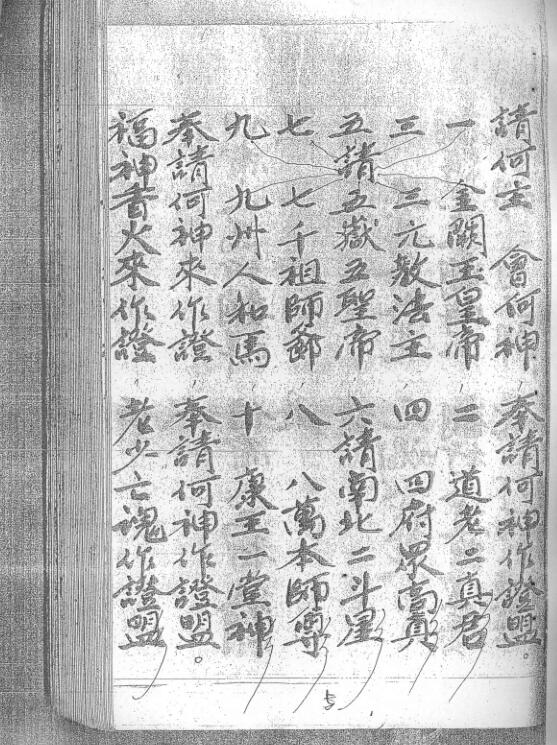 請何主 會何神 奉請何神作證盟。
一 金闕玉皇帝 二 道老二真君
三 三元教法主 四 四府眾高真
五請五嶽五聖帝 六請南北二斗星
七 七千祖師爺 八 八萬本師尊
九 九州人和馬 十 康王一堂神
奉請何神來作證 奉請何神作證盟。
福神香火來作證 老少亡魂作證盟
5